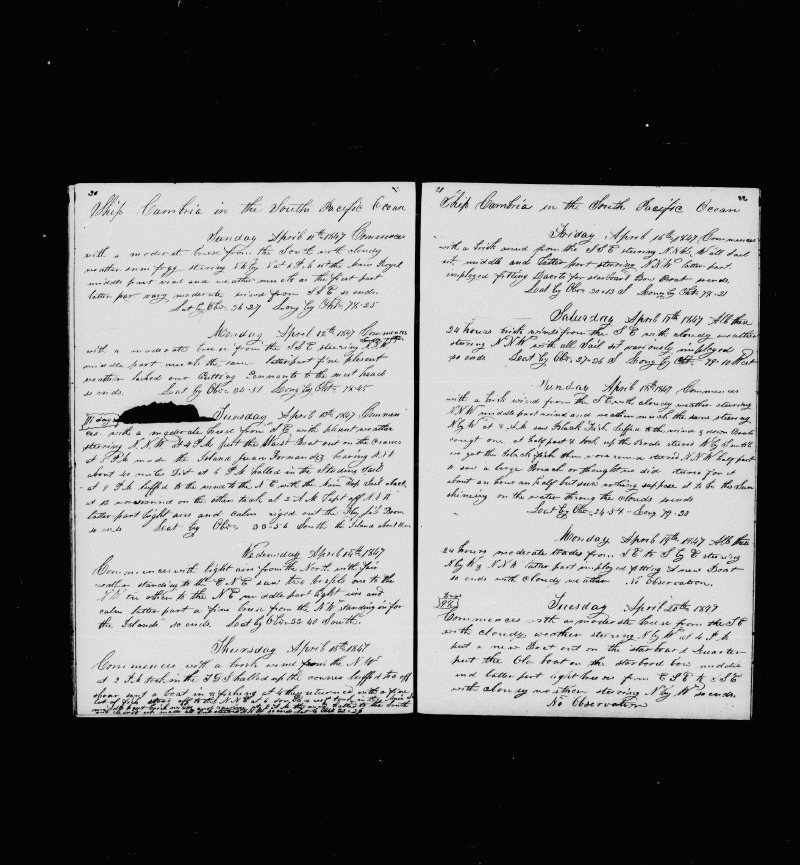 20
Ship Cambria in the South Pacific Ocean
Sunday April 11th 1847 Commences
with a moderate breese from the South with cloudy
weather some fogg stering N by W at 6 P.M. set the Main Royal
middle part wind and weather much as the first part
latter part very moderate wind from S S E so ends
Lat by Obs 36-27 Long by Chr 78-25
Monday April 12th 1847 Commences
with a moderate breese from the S S E steering N N W
middle part much the same latter part fine plesent
weather lashed our Cutting Pennants to the mast head
so ends. Lat by Obs 34-51 Long by Chr 78-45
91 days
Tuesday April 13th 1847 Commen
ces with a moderate breese from S E with plesent weather
steering N N W at 4 P.M. put the Wast Boat out on the Cranes
at 5 P.M. made the Island Juan Fernandez bearing
about 40 miles Dist at 6 P.M. halled in the Studing Sails
at 8 P.M. luffed to the wind to the N E with the Main Top Sail aback
at 12 wore around on the other tack at 2 A.M. kept off
latter part light airs and calm riged out the Fly jib Boom
so ends Lat by Obs 33-56 South the Island about
Wednesday April 14th 1847
Commences with light airs from the North with fine
weather standing to the E N E saw two vessels one to the
N W the other to the N E middle part light airs and
calm latter part a fine breese from the N W standing in for
the Island so ends Lat by Obs 33 40 South.
Thursday April 15th 1847
Commences with a brisk wind from the N W
at 2 P.M. took in the T G S halled up the courses luffed too off
shore sent a boat in a fishing at 4 they returned with a fine
lot of fish
21
22
Ship Cambria in the South Pacific Ocean
Friday April 16th 1847 Commences
with a brisk wind from the S S E steering N N W, all sail
set middle and latter part steering N N W latter part
imployed fitting Davits for starboard Bow Boat so ends
Lat by Obs S Long by Chr 78-21
Saturday April 17th 1847 All these
24 hours brisk winds from the S E with cloudy weather
steering N N W with all sail set variously imployed
so ends Lat by Obs 27-26 S Long by Chr 78-10 West
Sunday April 18th 1847 Commences
with a brisk wind from the S E with cloudy weather steering
N N W middle part wind and weather much the same steering
N by W at 8 A.M. saw Black Fish luffed to the wind & down Boats
caught one at half past 8 took up the Boats
we got the black fish then wore round steered N N W half past
11 saw a large Breach or thought we did steered for it
about an hour an half but saw nothing suppose it to be the Sun
shineing on the water through the clouds so ends
Lat by Obs 24-54 Long 79-20
Monday April 19th 1847 All these
24 hours moderate trades from S E to S by E steering
N by W & N N W latter part imployed fitting Larbow Boat
so ends with cloudy weather No Observation.
Days
98
Tuesday April 20th 1847
Commences with a moderate breese from the S E
with cloudy weather steering N by W at 4 P.M.
put a new Boat out on the starboard Quarter
put the Old boat on the starbord bow middle
and latter part light breeses from E S E to S S E
with cloudy weather steering N by W so ends.
No Observation